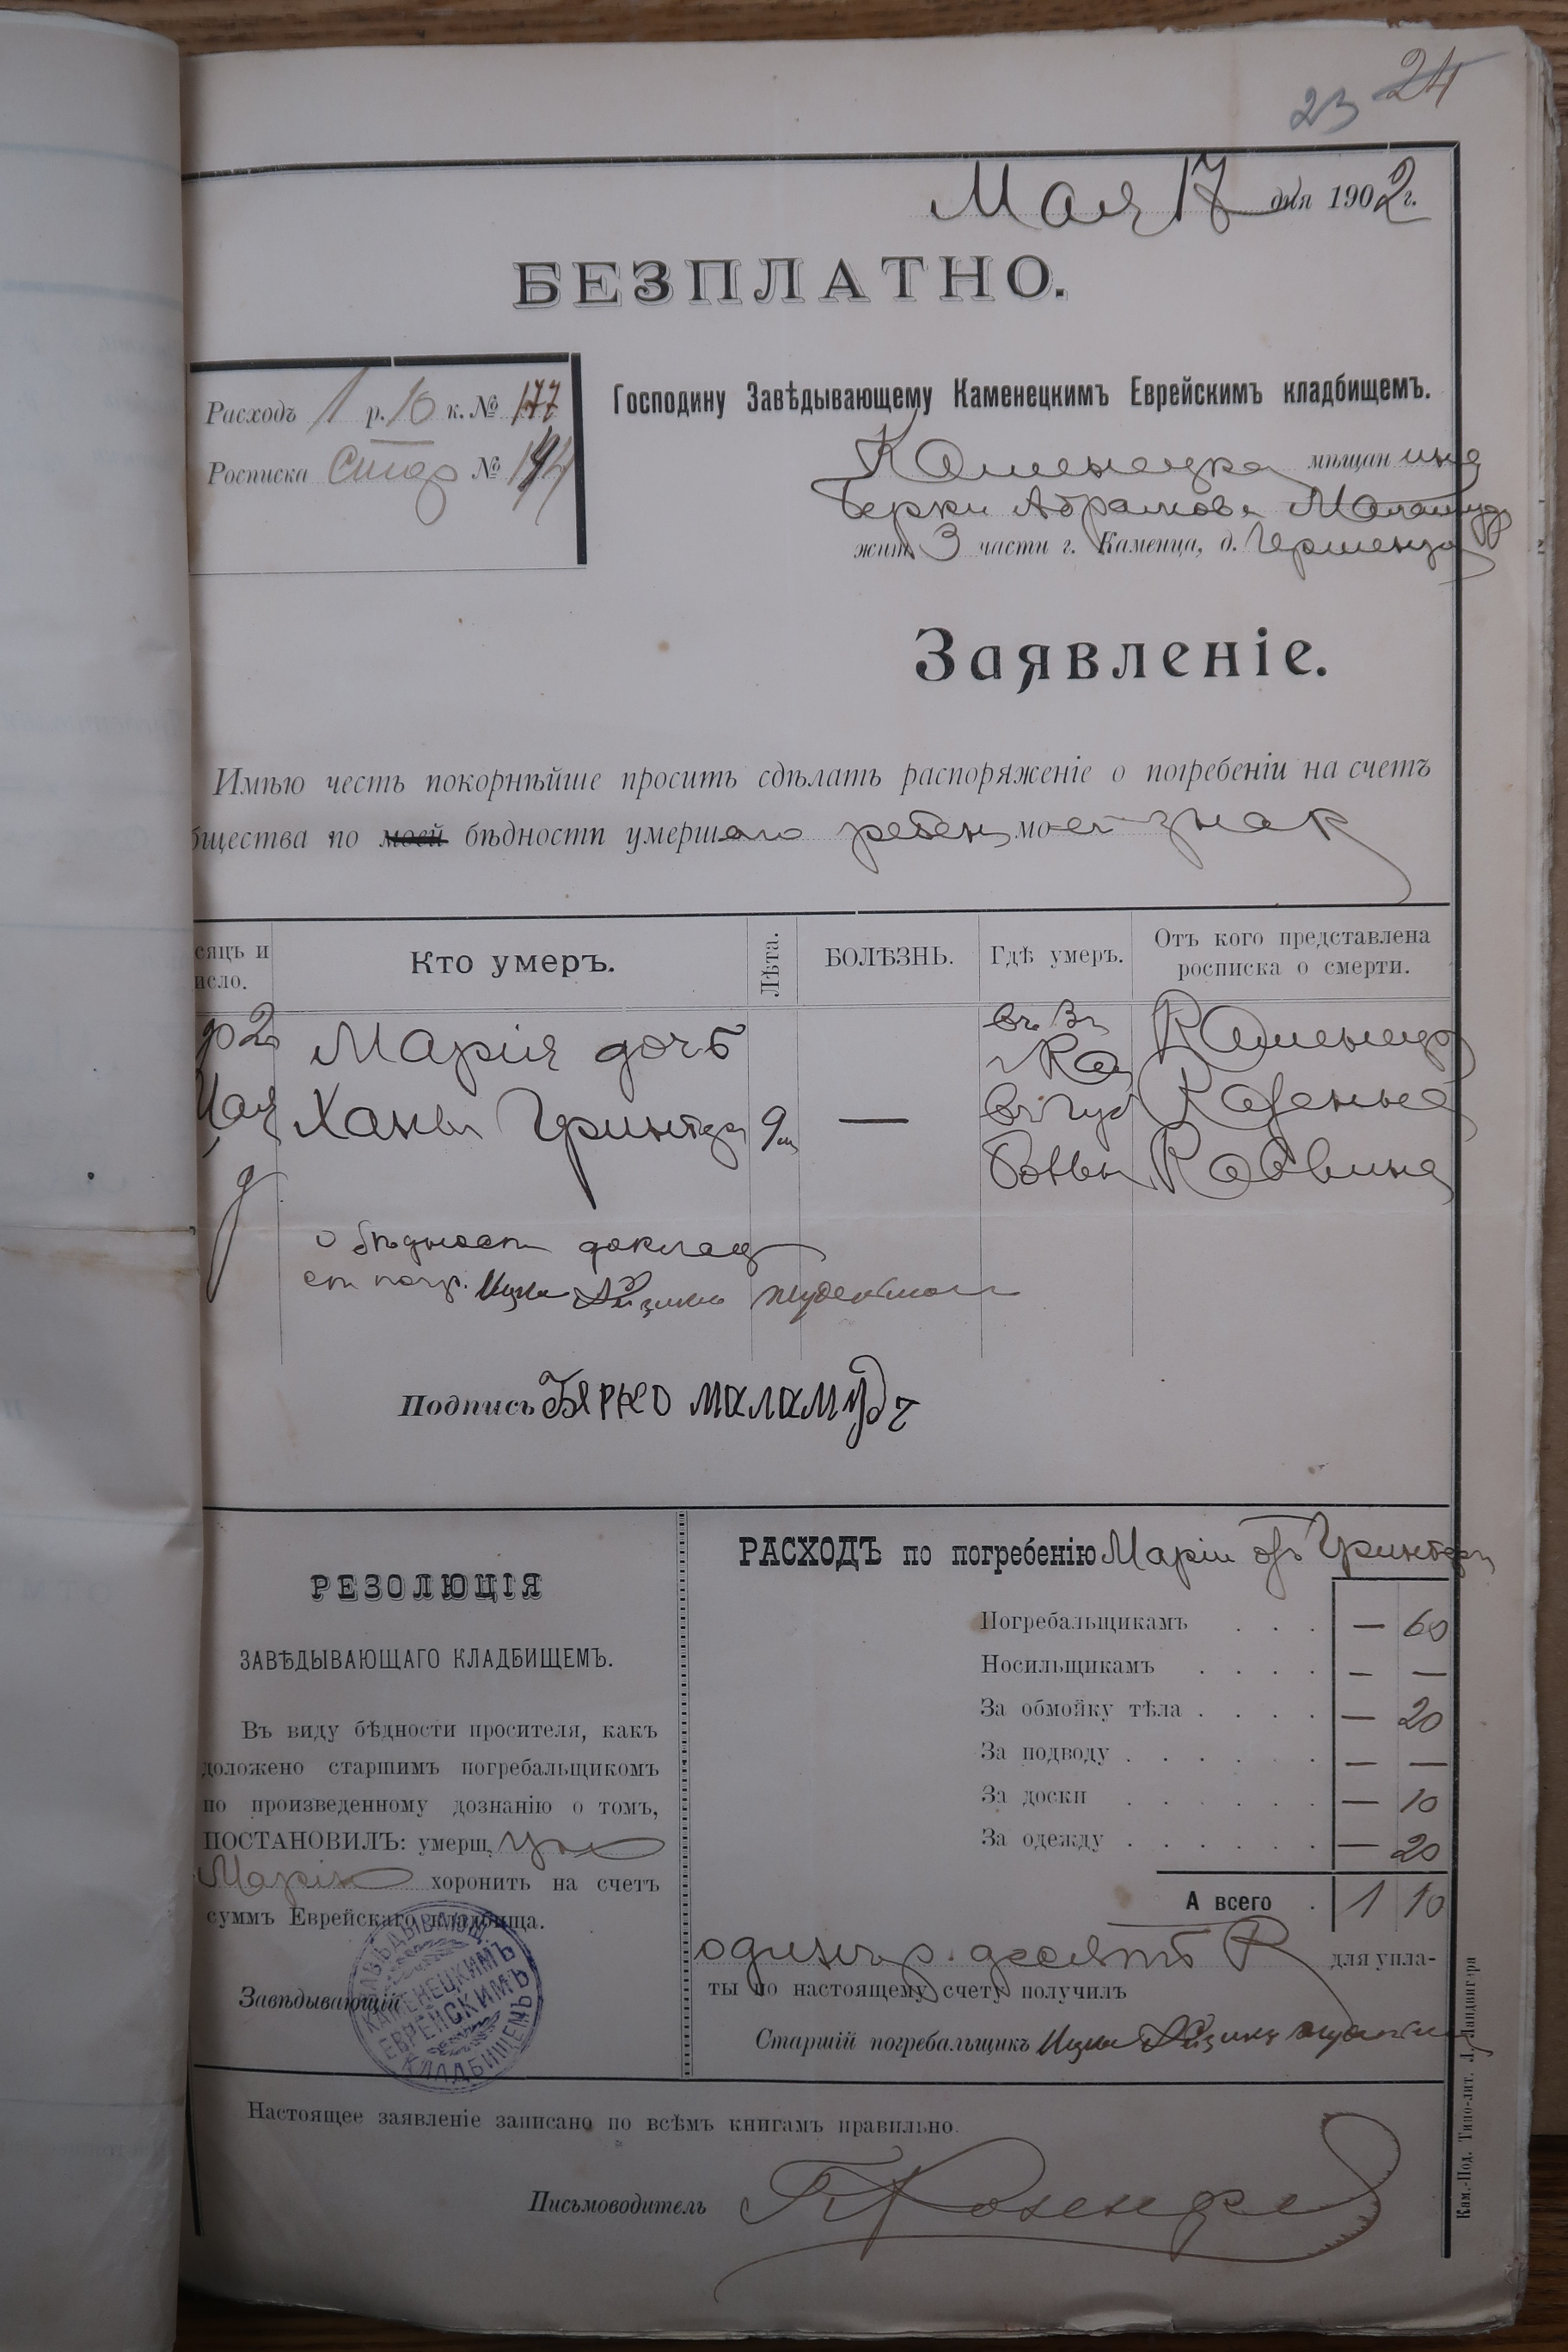 23 24
Мая 17 дня 1902 г.
БЕЗПЛАТНО.
Расходъ 1 р. 10 к. № 177
Росписка № 194
Господину Завѣдывающему Каменецкимъ Еврейскимъ кладбищемъ.
Каменецка мѣщанина
Берки Абрамова Маламуд
жит. 3 части г. Каменца, д. Гершенцо
Заявленіе.
Имѣю честь покорнѣйше просить сдѣлать распоряженіе о погребеніи на счетъ
бщества по моей бѣдности умершаго ребен моег знак
сяцъ и
исло.
Кто умеръ.
Лѣта.
БОЛѢЗНЬ.
Гдѣ умеръ.
Отъ кого представлена
росписка о смерти.
Марія дочь Каменец
Мая Ханы Гринбер 9м — Казенна
Раввина
о бѣдности доклад
Ицко Айзикъ
Подпись Бярко маламудъ
РЕЗОЛЮЦІЯ
ЗАВѢДЫВАЮЩАГО КЛАДБИЩЕМЪ.
Въ виду бѣдности просителя, какъ
доложено старшимъ погребальщикомъ
по произведенному дознанію о томъ,
ПОСТАНОВИЛЪ: умерш.
Марію хоронить на счетъ
суммъ Еврейскаго кладбища.
Завѣдывающій
ЗАВѢДЫВАЮЩ.
КАМЕНЕЦКИМЪ
ЕВРЕЙСКИМЪ
КЛАДБИЩЕМЪ
РАСХОДЪ по погребенію Маріи Гринбер
Погребальщикамъ . . . — 60
Носильщикамъ . . . . — —
За обмойку тѣла . . . . — 20
За подводу . . . . . . — —
За доски . . . . . . — 10
За одежду . . . . . . — 20
А всего . 1 10
одинъ р. десять К для упла-
ты по настоящему счету получилъ
Старшій погребальщикъ Ицко Айзикъ
Настоящее заявленіе записано по всѣмъ книгамъ правильно.
Письмоводитель
Кам.-Под. Типо-лит. Л. Ландвигера